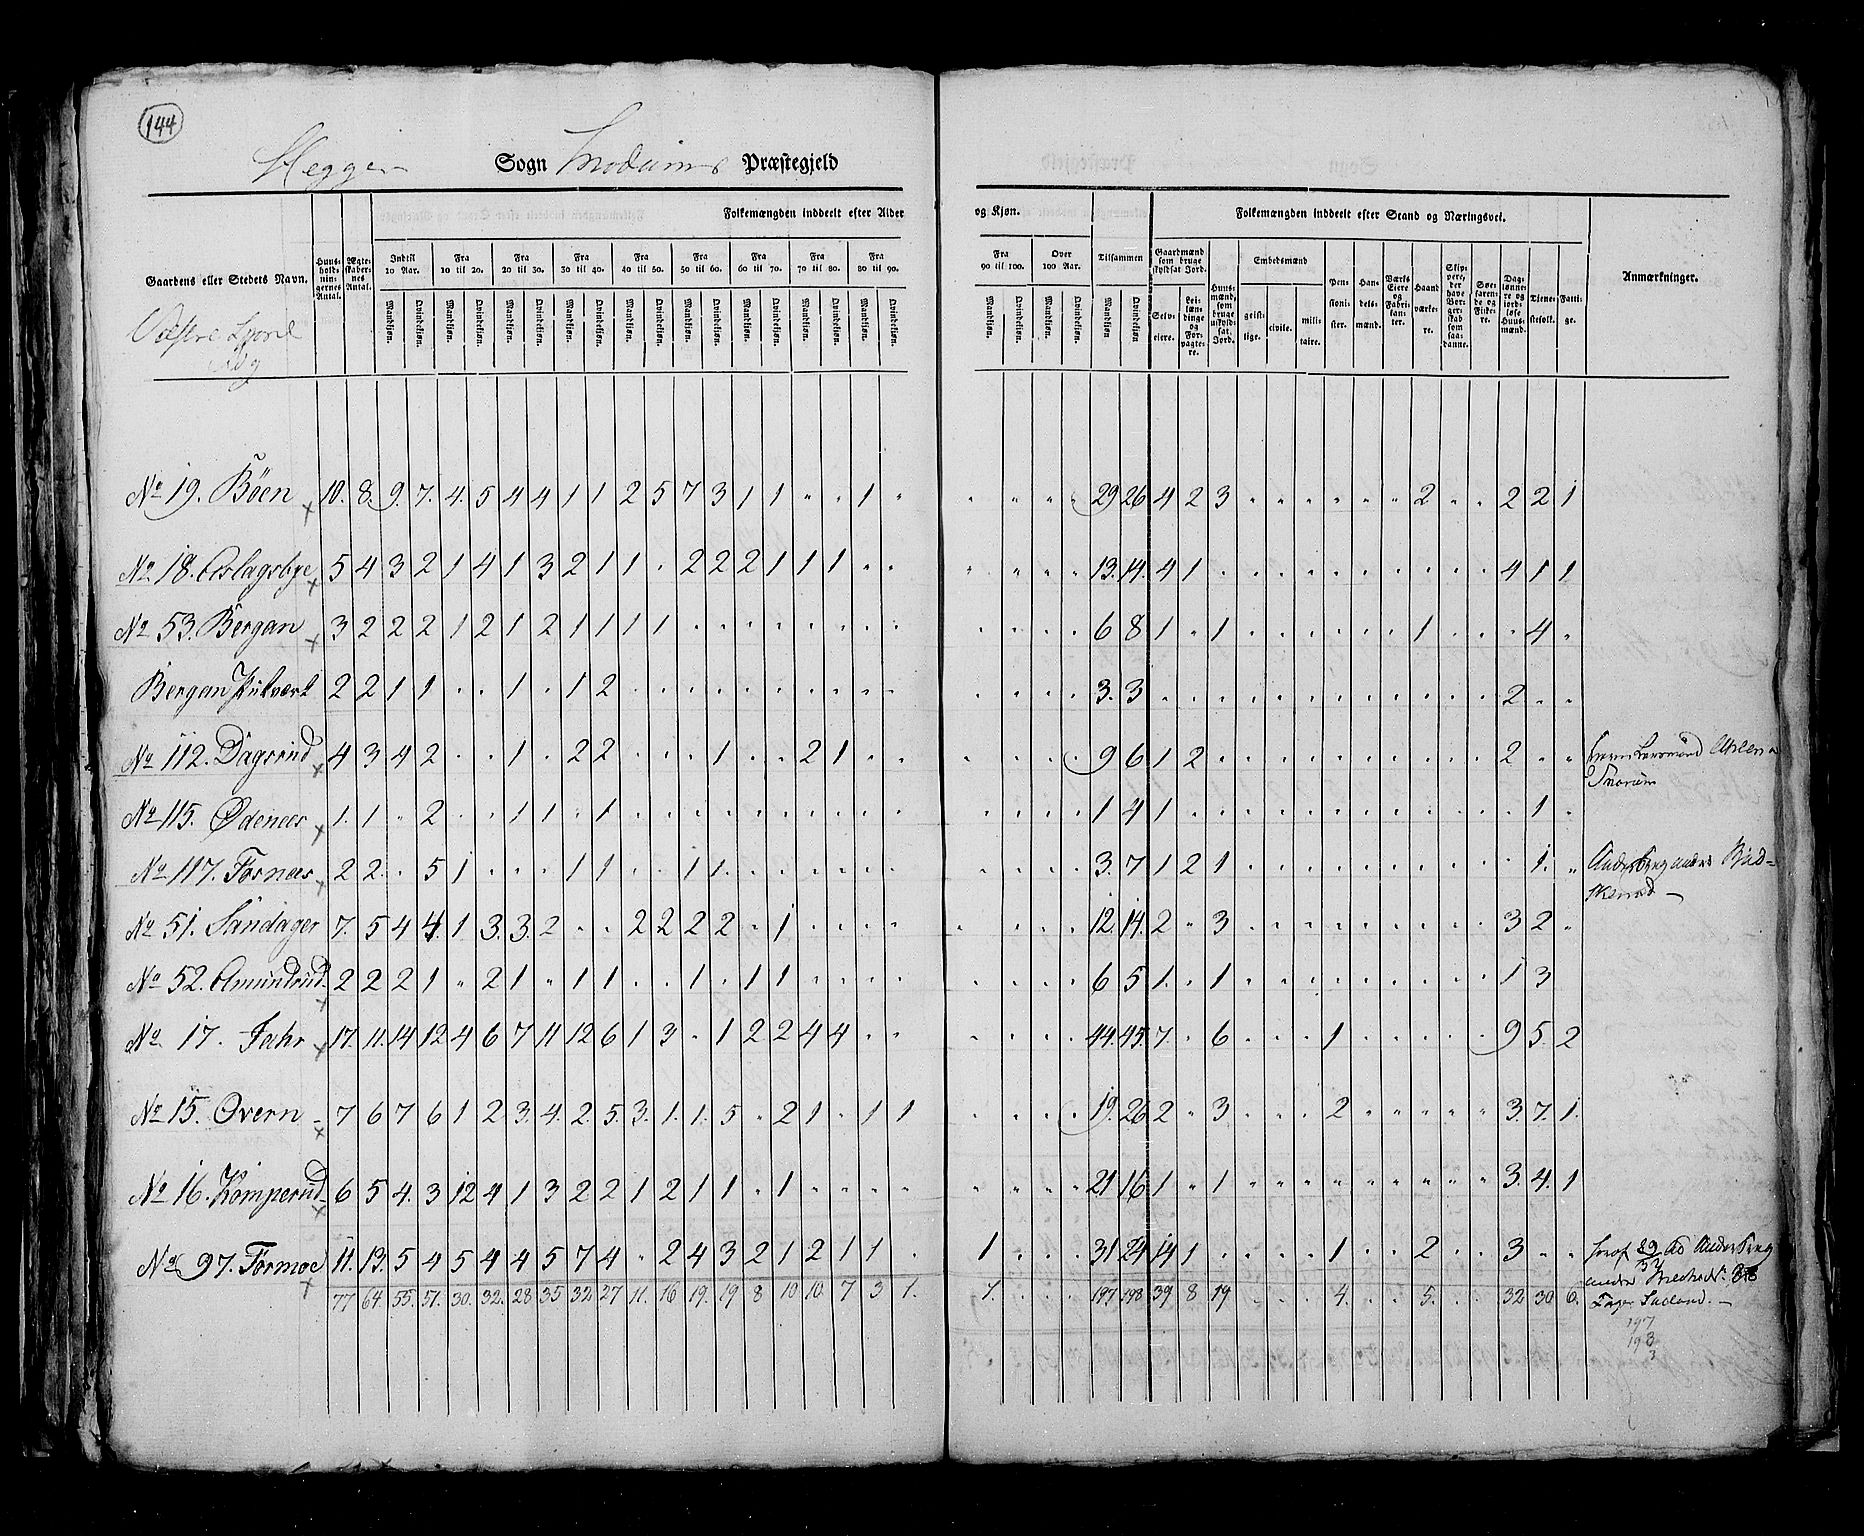 144
Heggen Sogn Modums Præstegjeld
Folkemængden inddeelt efter Alder og Kjøn. Folkemængden inddeelt efter Stand og Næringsvei.
Gaardens eller Stedets Navn. Huusholdningernes Antal. Ægteskabernes Antal. Indtil 10 Aar. Fra 10 til 20. Fra 20 til 30. Fra 30 til 40. Fra 40 til 50. Fra 50 til 60. Fra 60 til 70. Fra 70 til 80. Fra 80 til 90. Fra 90 til 100. Over 100 Aar. Tilsammen Gaardmænd som bruge skyldsat Jord. Huusmænd, som bruge uskyldsat Jord. Embedsmænd Pensionister. Handelsmænd. Værks Eiere og Fabrikanter. Haandværkere. Skippere, der have Borgerskab som saadanne. Søefarende og Fiskere. Dagløn̄nere og jordløse Huusmænd. Tjenestefolk. Fattige. Anmærkninger.
Mandkjøn. Qvindekjøn. Mandkjøn. Qvindekjøn. Mandkjøn. Qvindekjøn. Mandkjøn. Qvindekjøn. Mandkjøn. Qvindekjøn. Mandkjøn. Qvindekjøn. Mandkjøn. Qvindekjøn. Mandkjøn. Qvindekjøn. Mandkjøn. Qvindekjøn. Mandkjøn. Qvindekjøn. Mandkjøn. Qvindekjøn. Mandkjøn. Qvindekjøn. Selveiere. Leilændinge og Forpagtere. geistlige. civile. militaire.
Vestre
No 19. Böen x 10. 8. 9. 7. 4. 5 4 4 1 1 2 5 7 3 1 1 " " 1 " " " " " 29 26 4 2 3 " " " " " " 2 " " 2 2 1
No 18. Aslagsbye x 5 4 3 2 1 4 1 3 2 1 1 . 2 2 2 1 1 1 " " " " " " 13. 14. 4 1 . . . . . . . . . . 4 1 1
No 53. Bergan x 3 2 2 2 1 2 1 2 1 1 1 1 . . . . . . . . . . . . 6 8 1 . 1 . . . . . . 1 . . . 4 .
Bergan 2 2 1 1 . . 1 . 1 2 . . . . . . . . . . . . . . 3. 3 . . . . . . . . . . . . 2 . .
No 112. Dagsrud x 4 3 4 2 . . 1 . 2 2 . . . 1 . . 2 1 . . . . . . 9 6 1 2 . . . . . . . . . . 2 . .
No 115. Ødenees x 1. 1 . 2 . . 1 1 . 1 . . . . . . . . . . . . . . 1 4 1 . . . . . . . . . . . . 1 .
No 117. Fosnees x 2 2. . 5 1 . . . 1 1 . . 1 1 . . . . . . . . . . 3. 7 1 2 1 . . . . . . . . . . 1. "
No 51. Sandager 7. 5 4 4. 1 3. 3. 2 . . 2 2 2 2 . 1 . . . . . . . . 12. 14. 2 " 3 . . . . . . . . . 3 2 .
No 52. Amundrud x 2 2 2 1 . 2 1 . 1 1 . . 1 . 1 1 . . . . . . . . 6 5 1. . 1 . . . . . . . . . 1 3
No 17. x 17. 11. 14 12 4 6 7 11 12 6 1 3 . 1 2 2 4 4 . . . . . . 44. 45. 7. . 6 . . . 1 . . . . . 9 5. 2
No 15. Overn x 7 6 7 6 1 2 3. 4. 2. 5 3. 1. 1. 5 " 2 1 . 1 1 . . . . 19. 26 2 " 3 . . . 2 . . . . . 3. 7. 1.
No 16. Komperud x 6 5 4. 3 12 4 1 3 2 2 1 2 1 1 . 1 . . . . . . . . 21 16 1 . 1 . . . . . . . . . 3. 4. 1
No 97. Formoe x 11. 13. 5 4 5 4 4 5 7 4 . 2 4 3 2 1 2 1 1 . 1 . . . 31. 24 14 1 . . . . 1 . . 2 . . 3 . .
77 64. 55. 51. 30. 32. 28 35 32 27 11. 16 19. 19 8 10 10. 7 3 1. 1. . . . 197 198 39 8 19 . . . 4. . . 5. . . 32 30 6.
197
198
3